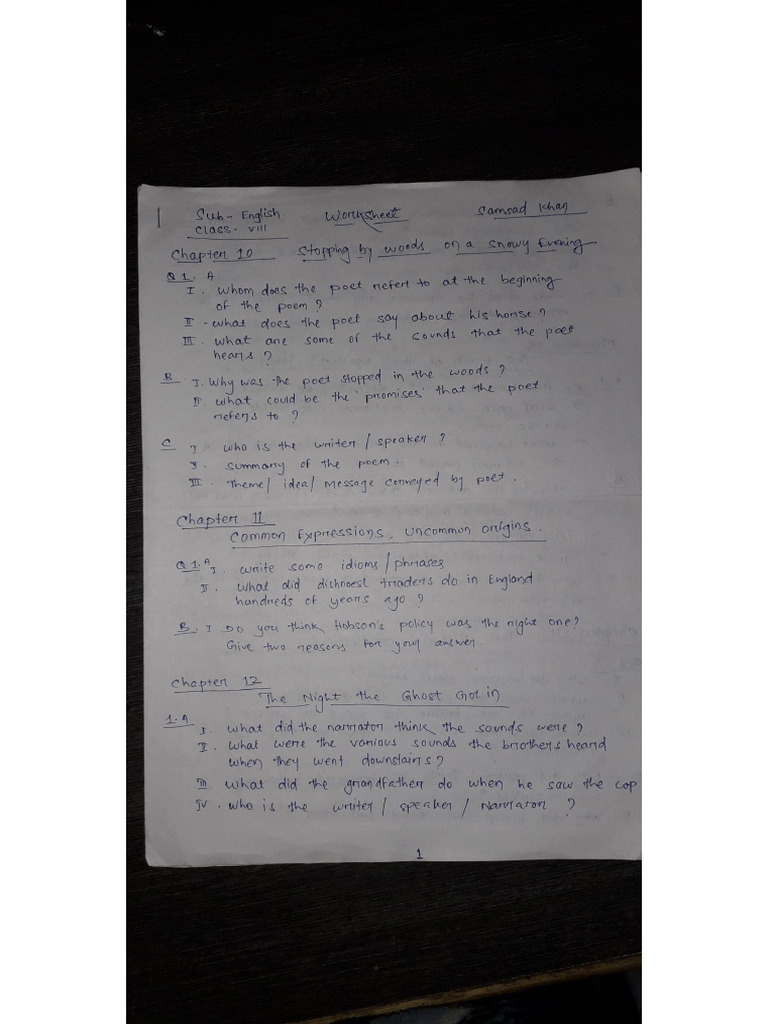 Sub- English Worksheet Samsad Khan
Class- VIII
Chapter 10 Stopping by woods on a snowy Evening
Q1. A
I. Whom does the poet refert to at the beginning
of the poem?
II. What does the poet say about his horse?
III. What are some of the sounds that the poet
hears?
B I. Why was the poet stopped in the woods?
II. What could be the 'promises' that the poet
refers to?
C I who is the writer / speaker?
II. Summary of the poem.
III. Theme/ idea/ Message conveyed by poet.
Chapter 11
Common Expressions, Uncommon Origins.
Q1. A I. Write some idioms/phrases
II. What did dishnoest traders do in England
hundreds of years ago?
B. I Do you think Hobson's policy was the right one?
Give two reasons for your answer.
Chapter 12
The Night the Ghost Got in
1. A I. What did the narrator think the sounds were?
II. What were the various sounds the brothers heard
when they went downstairs?
III What did the grandfather do when he saw the cop
IV. Who is the writer/ speaker / Narrator ?
1